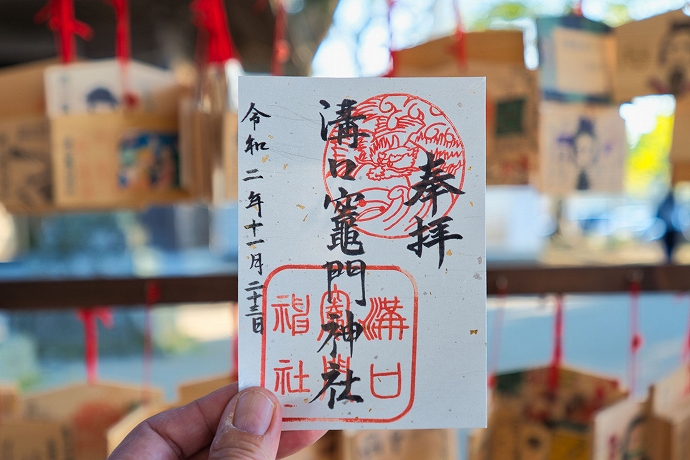 奉拝
溝口竈門神社
令和二年十一月二十三日
溝口
竈門
神社